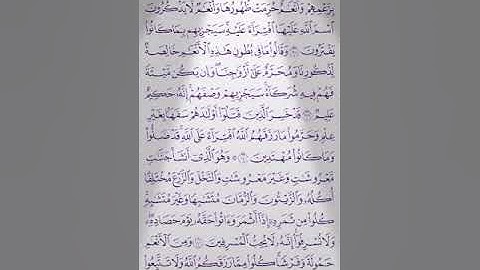 بِزَعْمِهِمْ وَأَنْعَٰمٌ حُرِّمَتْ ظُهُورُهَا وَأَنْعَٰمٌ لَّا يَذْكُرُونَ
ٱسْمَ ٱللَّهِ عَلَيْهَا ٱفْتِرَآءً عَلَيْهِ سَيَجْزِيهِم بِمَا كَانُوا۟
يَفْتَرُونَ ۝ وَقَالُوا۟ مَا فِى بُطُونِ هَٰذِهِ ٱلْأَنْعَٰمِ خَالِصَةٌ
لِّذُكُورِنَا وَمُحَرَّمٌ عَلَىٰٓ أَزْوَٰجِنَا وَإِن يَكُن مَّيْتَةً
فَهُمْ فِيهِ شُرَكَآءُ سَيَجْزِيهِمْ وَصْفَهُمْ إِنَّهُۥ حَكِيمٌ
عَلِيمٌ ۝ قَدْ خَسِرَ ٱلَّذِينَ قَتَلُوٓا۟ أَوْلَٰدَهُمْ سَفَهًۢا بِغَيْرِ
عِلْمٍ وَحَرَّمُوا۟ مَا رَزَقَهُمُ ٱللَّهُ ٱفْتِرَآءً عَلَى ٱللَّهِ قَدْ ضَلُّوا۟
وَمَا كَانُوا۟ مُهْتَدِينَ ۝ وَهُوَ ٱلَّذِىٓ أَنشَأَ جَنَّٰتٍ
مَّعْرُوشَٰتٍ وَغَيْرَ مَعْرُوشَٰتٍ وَٱلنَّخْلَ وَٱلزَّرْعَ مُخْتَلِفًا
أُكُلُهُۥ وَٱلزَّيْتُونَ وَٱلرُّمَّانَ مُتَشَٰبِهًا وَغَيْرَ مُتَشَٰبِهٍ
كُلُوا۟ مِن ثَمَرِهِۦٓ إِذَآ أَثْمَرَ وَءَاتُوا۟ حَقَّهُۥ يَوْمَ حَصَادِهِۦ
وَلَا تُسْرِفُوٓا۟ إِنَّهُۥ لَا يُحِبُّ ٱلْمُسْرِفِينَ ۝ وَمِنَ ٱلْأَنْعَٰمِ
حَمُولَةً وَفَرْشًا كُلُوا۟ مِمَّا رَزَقَكُمُ ٱللَّهُ وَلَا تَتَّبِعُوا۟